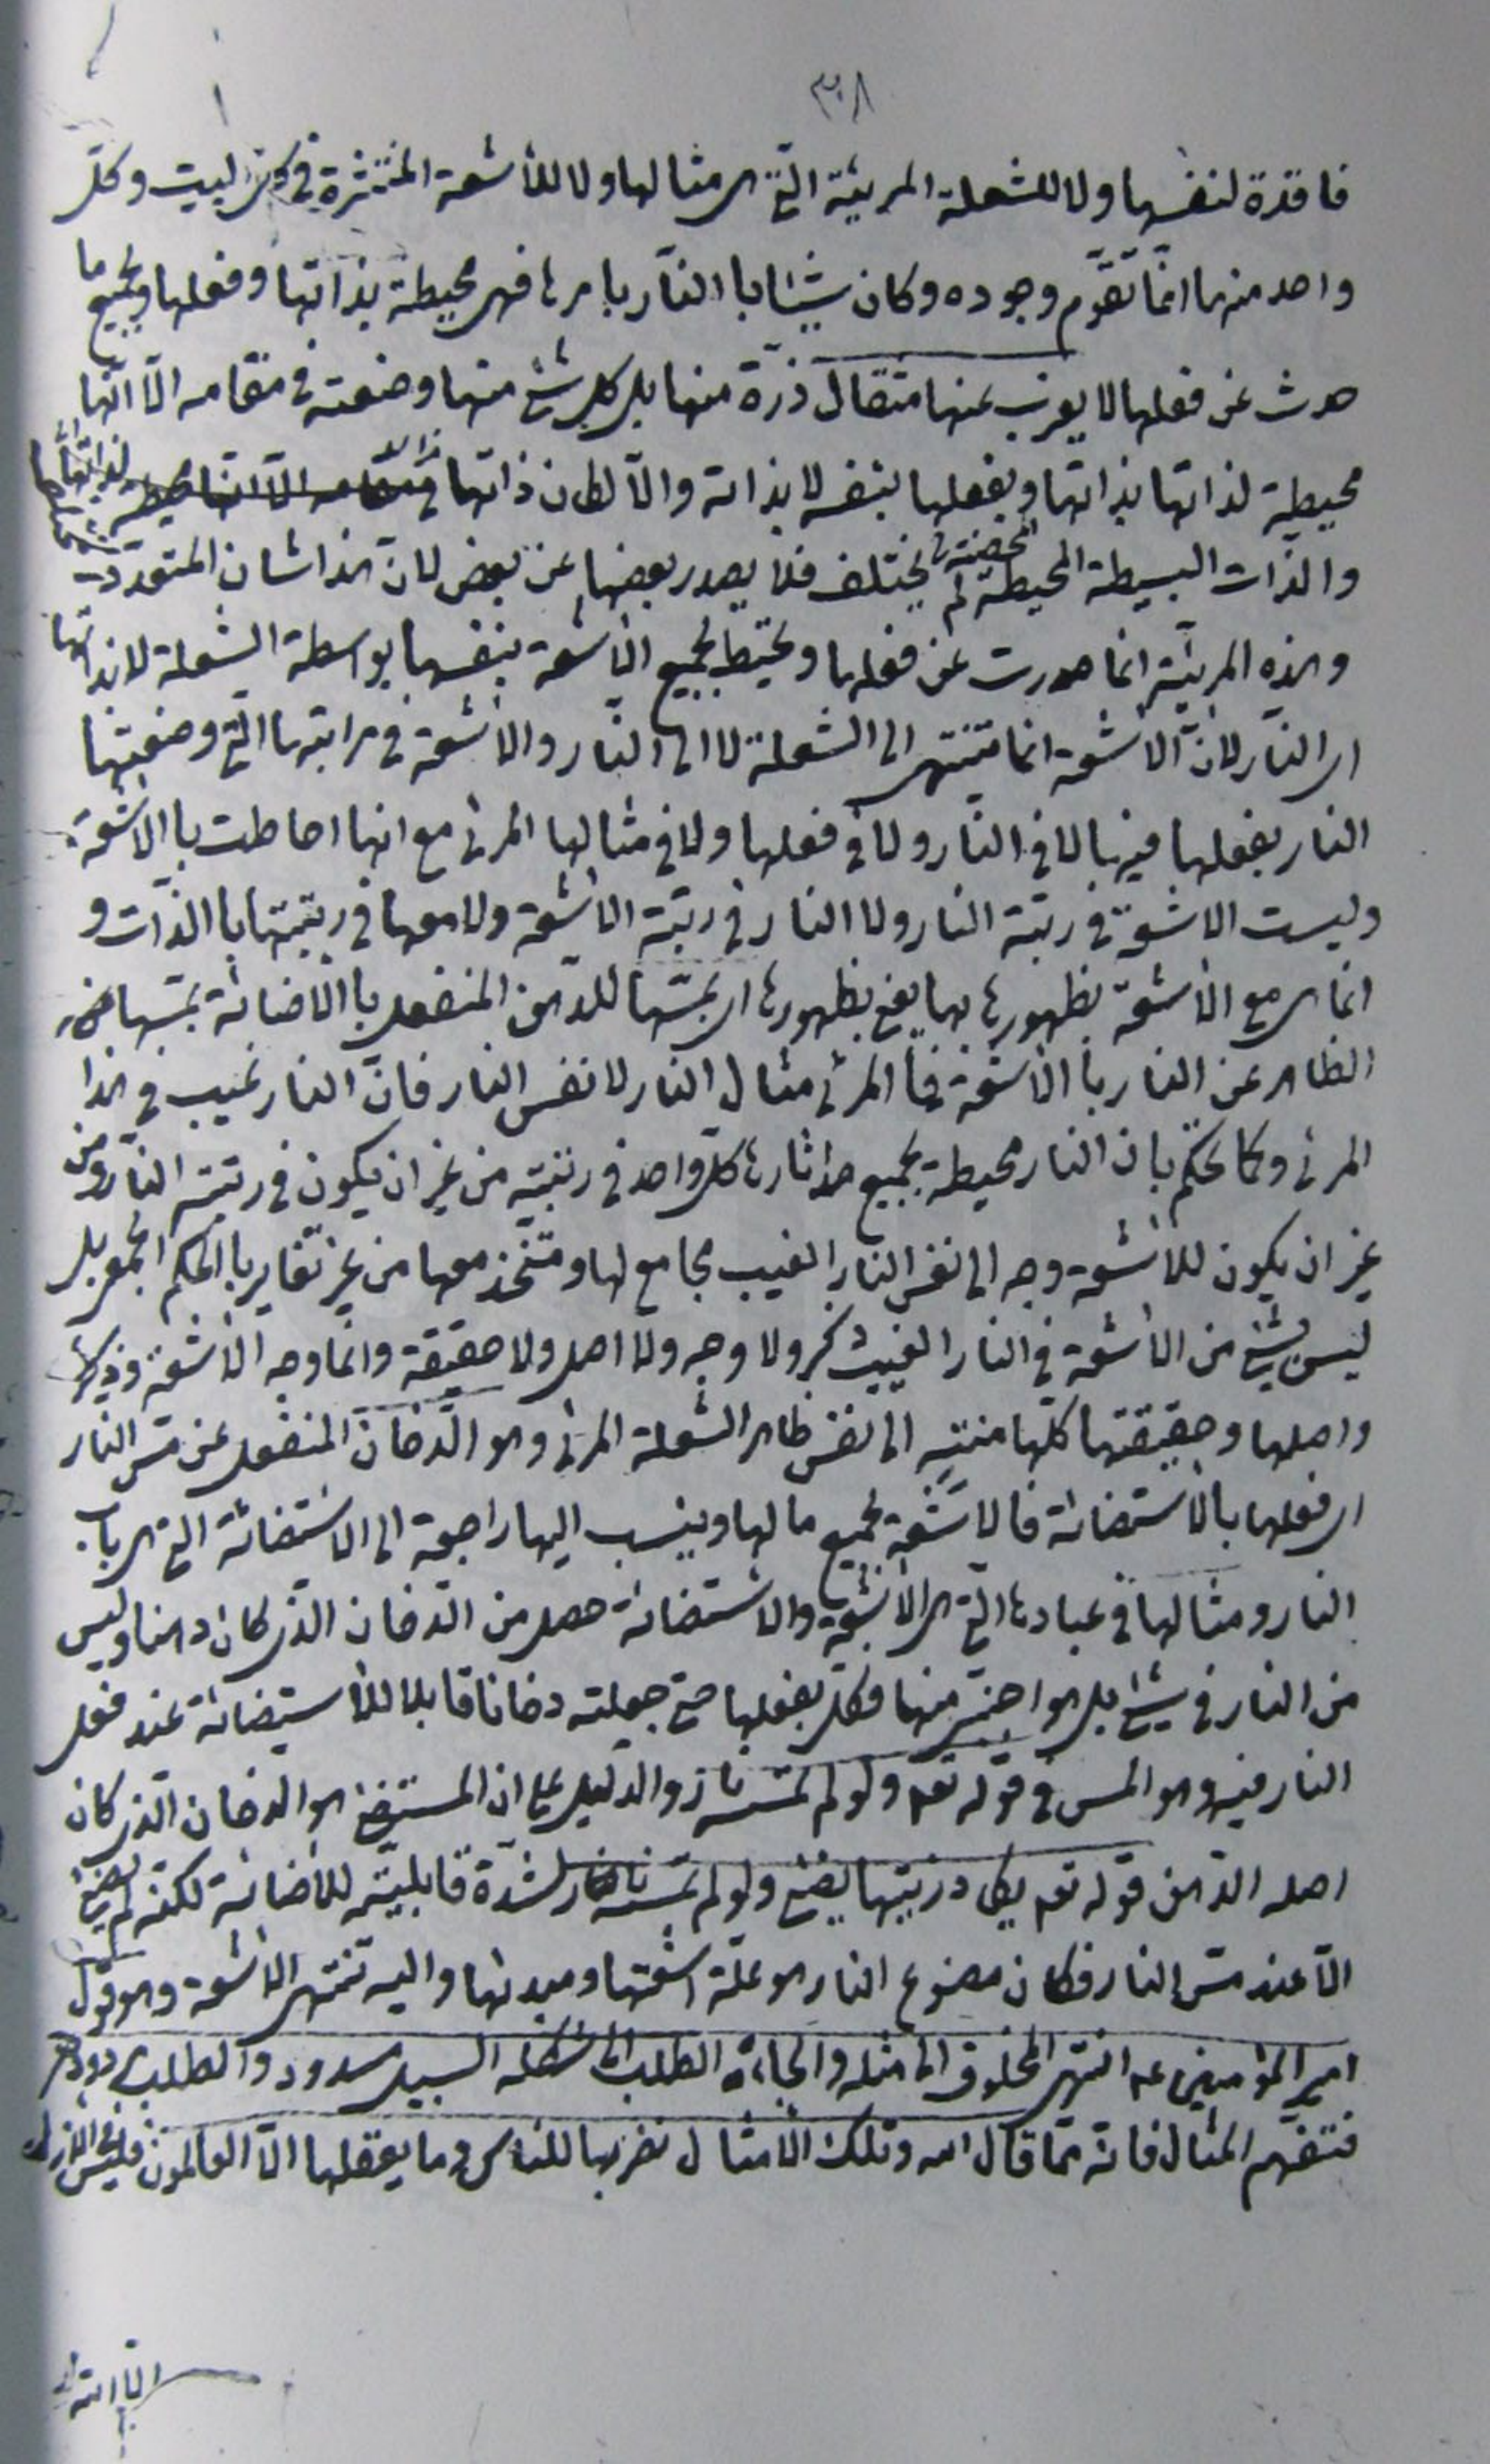 ٣٠٨
فاقدة لنفسها ولا للشعلة المرئية الّتي هي مثالها ولا للأشعة المنتشرة في البيت وكلّ
واحد منها انّما تقوّم وجوده وكان شيئا با النّار بامرها فهي محيطة بذاتها وفعلها وبجميع ما
حدث عن فعلها لا يعزب عنها مثقال ذرّة منها بل كل شئ منها وضعته في مقامه الّا انّها
محيطة لذاتها بذاتها وبفعلها بنفسه لا بذاته والّا لكان ذاتها
والذّات البسيطة المحيطة لم يختلف فلا يصدر بعضها عن بعض لان هذا شان المتعدد
وهذه المرئيّة انما صدرت عن فعلها وتحيط بجميع الأشعة بنفسها بواسطة الشعلة لا بذاتها
اي النّار لانّ الاشعة انما تنتهي الى الشعلة لا الى النّار والأشعة في مراتبها الّتي وضعتها
النار بفعلها فيها لا في النّار ولا في فعلها ولا في مثالها المرئي مع انها احاطت با الاشعّة
وليست الاشعّة في رتبة النار ولا النار في رتبة الاشعّة ولا معها في رتبتها با الذّات و
انما هي مع الأشعة بظهورها بها يعني بظهورها اي بمسّها للدّهن المنفعل با الاضائة بمسّها
الظاهر عن النار با الأشعّة فا المرئي مثال النار لا نفس النار فانّ النار غيب في هذا
المرئي وكما تحكم بان النار محيطة بجميع اثارها كلّ واحد في رتبته من غير ان يكون في رتبة النّار ومن
غير ان يكون للأشعة وجه الى نفس النار الغيب مجامع لها ومتّخذ معها من غير تغاير با الحكم الجمعي بل
ليس شئ من الأشعة في النار الغيب ذكر ولا وجه ولا اصل ولا حقيقة وانّما وجه الأشعّة وذكرها
واصلها وحقيقتها كلّها منتهٍ الى نفس ظاهر الشعلة المرئي وهو الدّخان المنفعل عن مسّ النار
اي فعلها بالاستضائة فالاشّعة بجميع ما لها وينسب اليها راجعة الى الاستضائة الّتي هي باب
النار ومثالها في عبادها الّتي هي الأشعّة والاستضائة حصل من الدّخان الذي كان دهنا وليس
من النار في شئ بل هو اجنبيّ منها وكلس بفعلها حتى جعلته دخانا قابلا للأستضائة عند فعل
النار فيه وهو المس في قوله تعـ ولو لم تمسسه نار والدّليل على ان المستضئ هو الدخان الّذي كان
اصله الدّهن قوله تعـ يكاد زيتها يضئ ولو لم تمسسه نار لشدّة قابليّته للأضائة لكنّه لم يضئ
الّا عند مسّ النار فكان مصنوع النار هو علّة اشعّتها ومبدئها واليه تنتهي الأشعة وهو قول
امير المؤمنين عـ انتهى المخلوق الى مثله والجاءه الطلب الى شكله السبيل مسدود والطلب مردود
فتفهّم المثال فانّه ممّا قال الله وتلك الأمثال نضربها للناس وما يعقلها الّا العالمون فليس